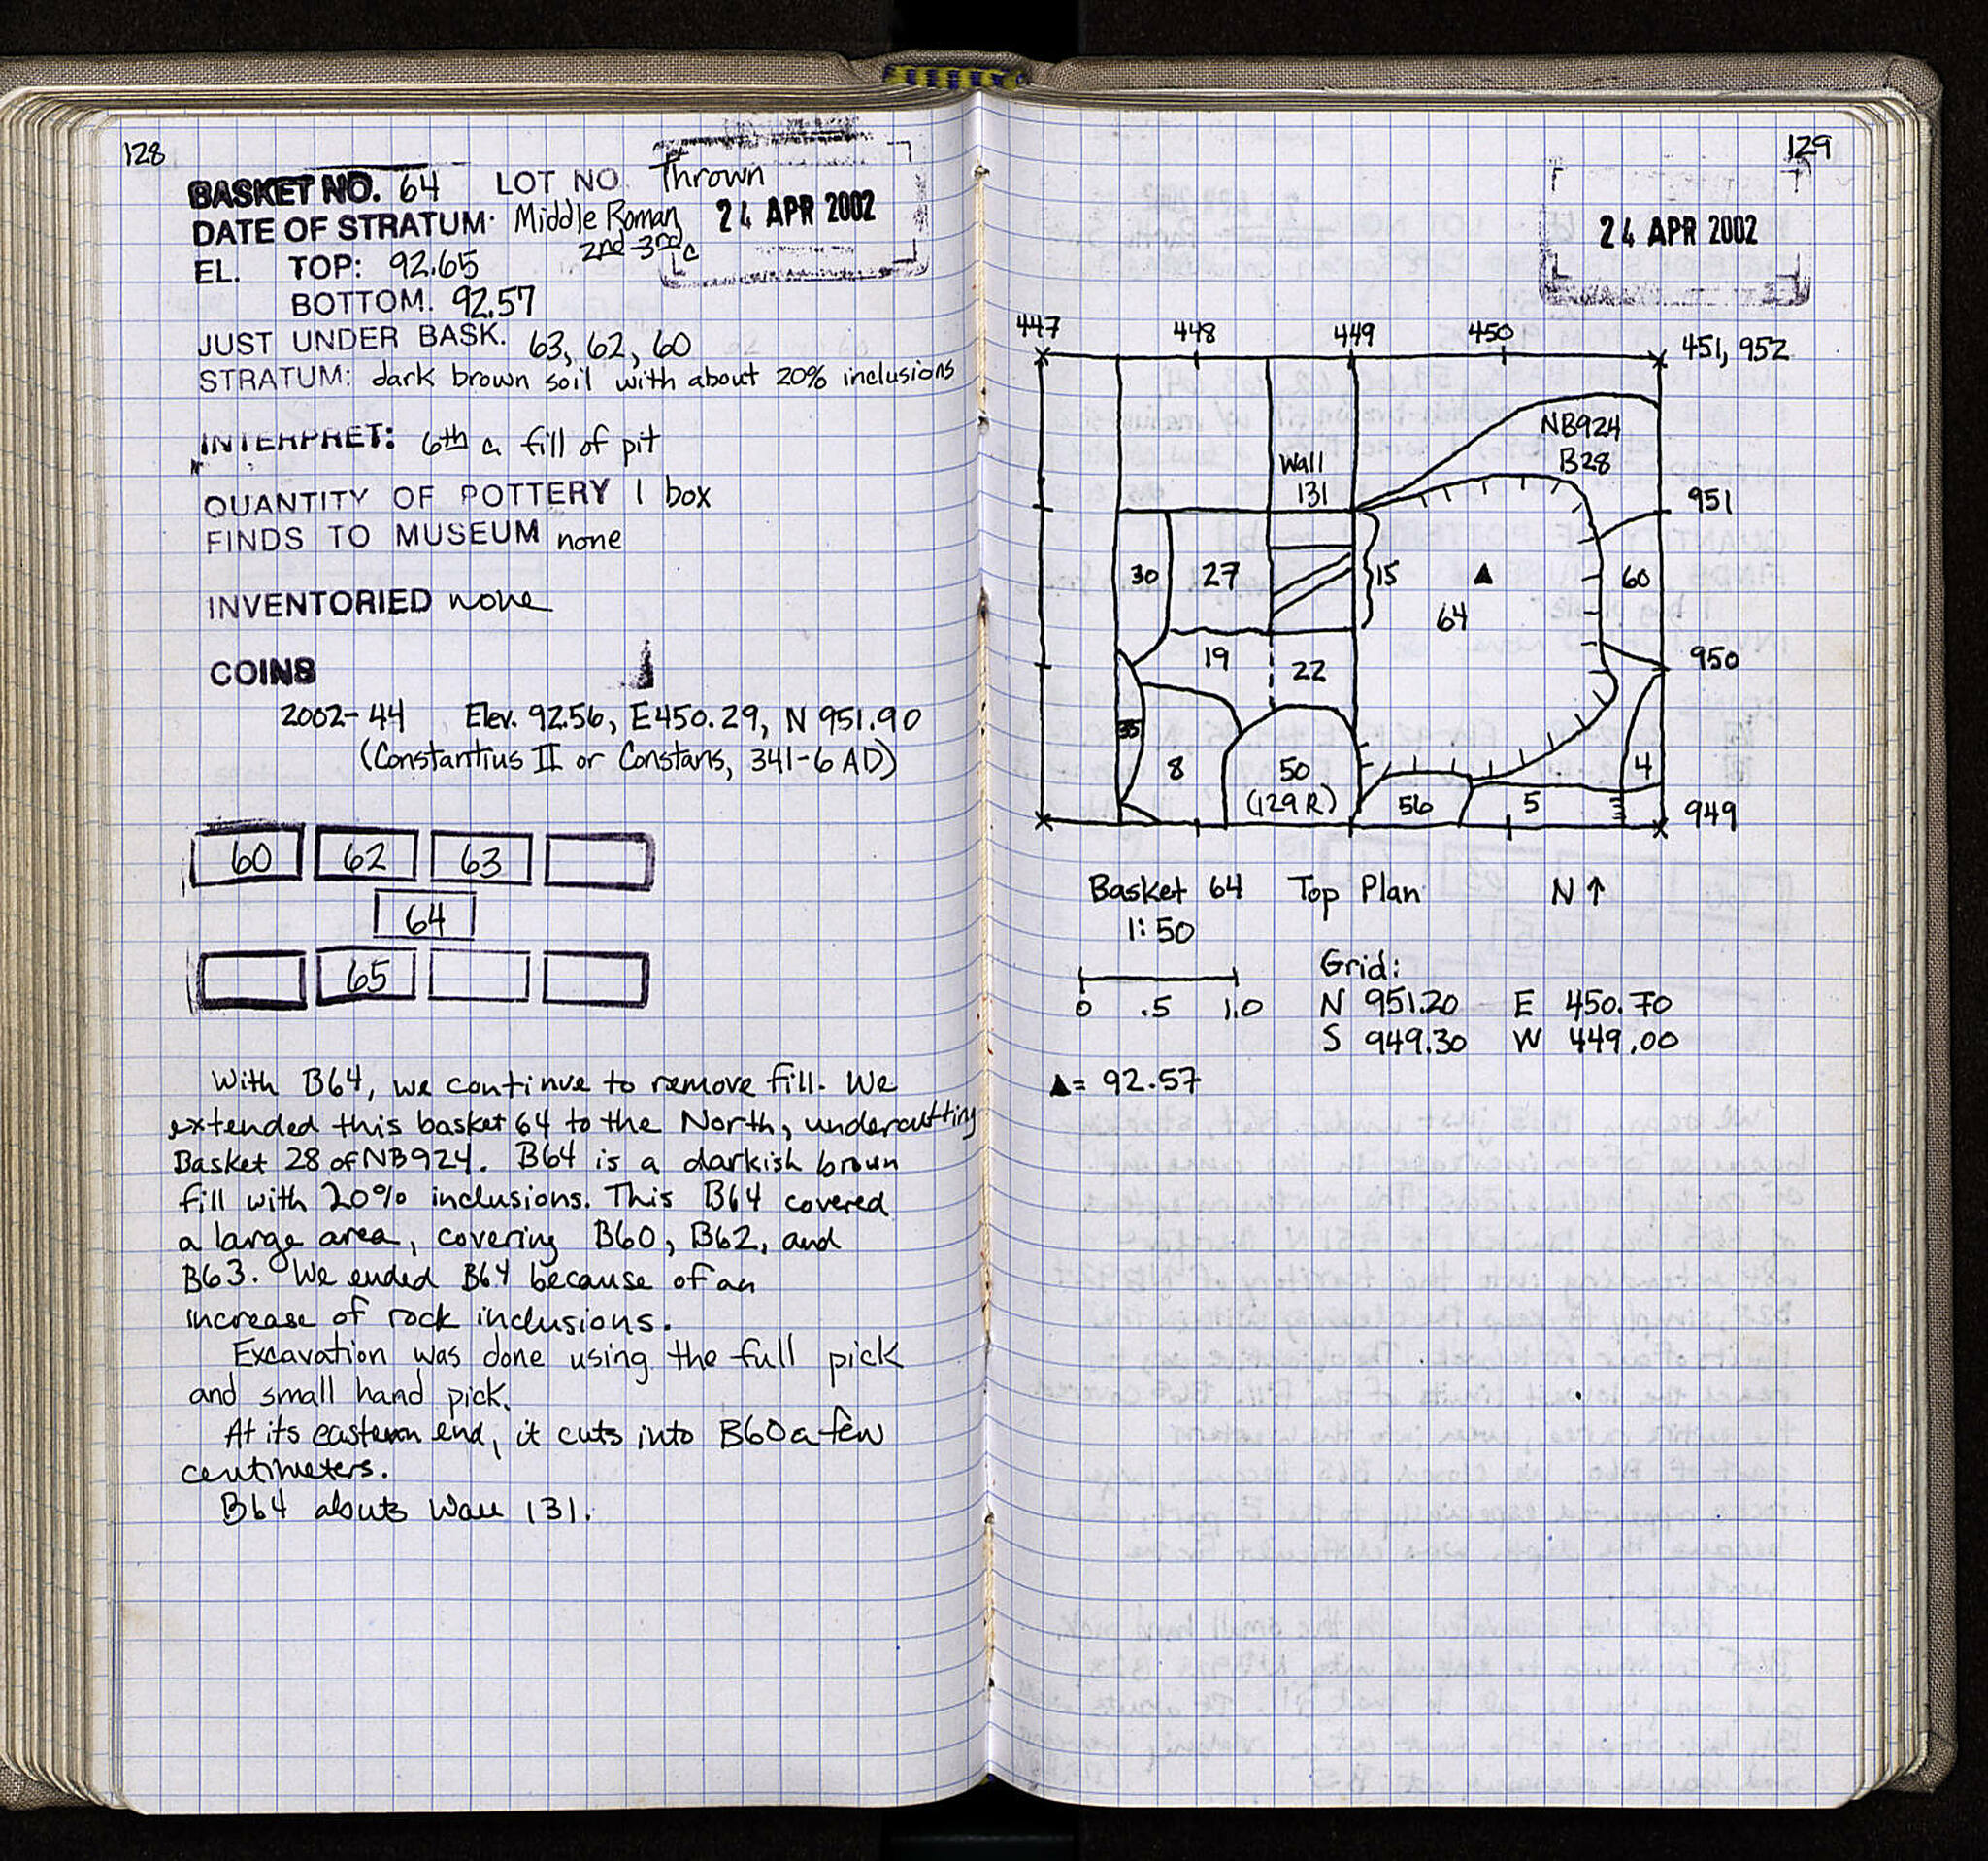 128
BASKET NO. 64 LOT NO. Thrown
DATE OF STRATUM: Middle Roman 24 APR 2002
2nd-3rd c
EL. TOP: 92.65
BOTTOM. 92.57
JUST UNDER BASK. 63, 62, 60
STRATUM: dark brown soil with about 20% inclusions
INTERPRET: 6th c fill of pit
QUANTITY OF POTTERY 1 box
FINDS TO MUSEUM none
INVENTORIED none
COINS
2002-44 Elev. 92.56, E450.29, N 951.90
(Constantius II or Constans, 341-6 AD)
60 62 63
64
65
With B64, we continue to remove fill. We
extended this basket 64 to the North, undercutting
Basket 28 of NB924. B64 is a darkish brown
fill with 20% inclusions. This B64 covered
a large area, covering B60, B62, and
B63. We ended B64 because of an
increase of rock inclusions.
Excavation was done using the full pick
and small hand pick.
At its eastern end, it cuts into B60 a few
centimeters.
B64 abuts Wall 131.
129
24 APR 2002
447 448 449 450 451, 952
NB924
B28
Wall
131
951
30 27 15 64 60
19 22
950
35 8 50
(129 R)
56 5 4
949
Basket 64 Top Plan N ↑
1:50
0 .5 1.0
Grid:
N 951.20 E 450.70
S 949.30 W 449.00
▲= 92.57